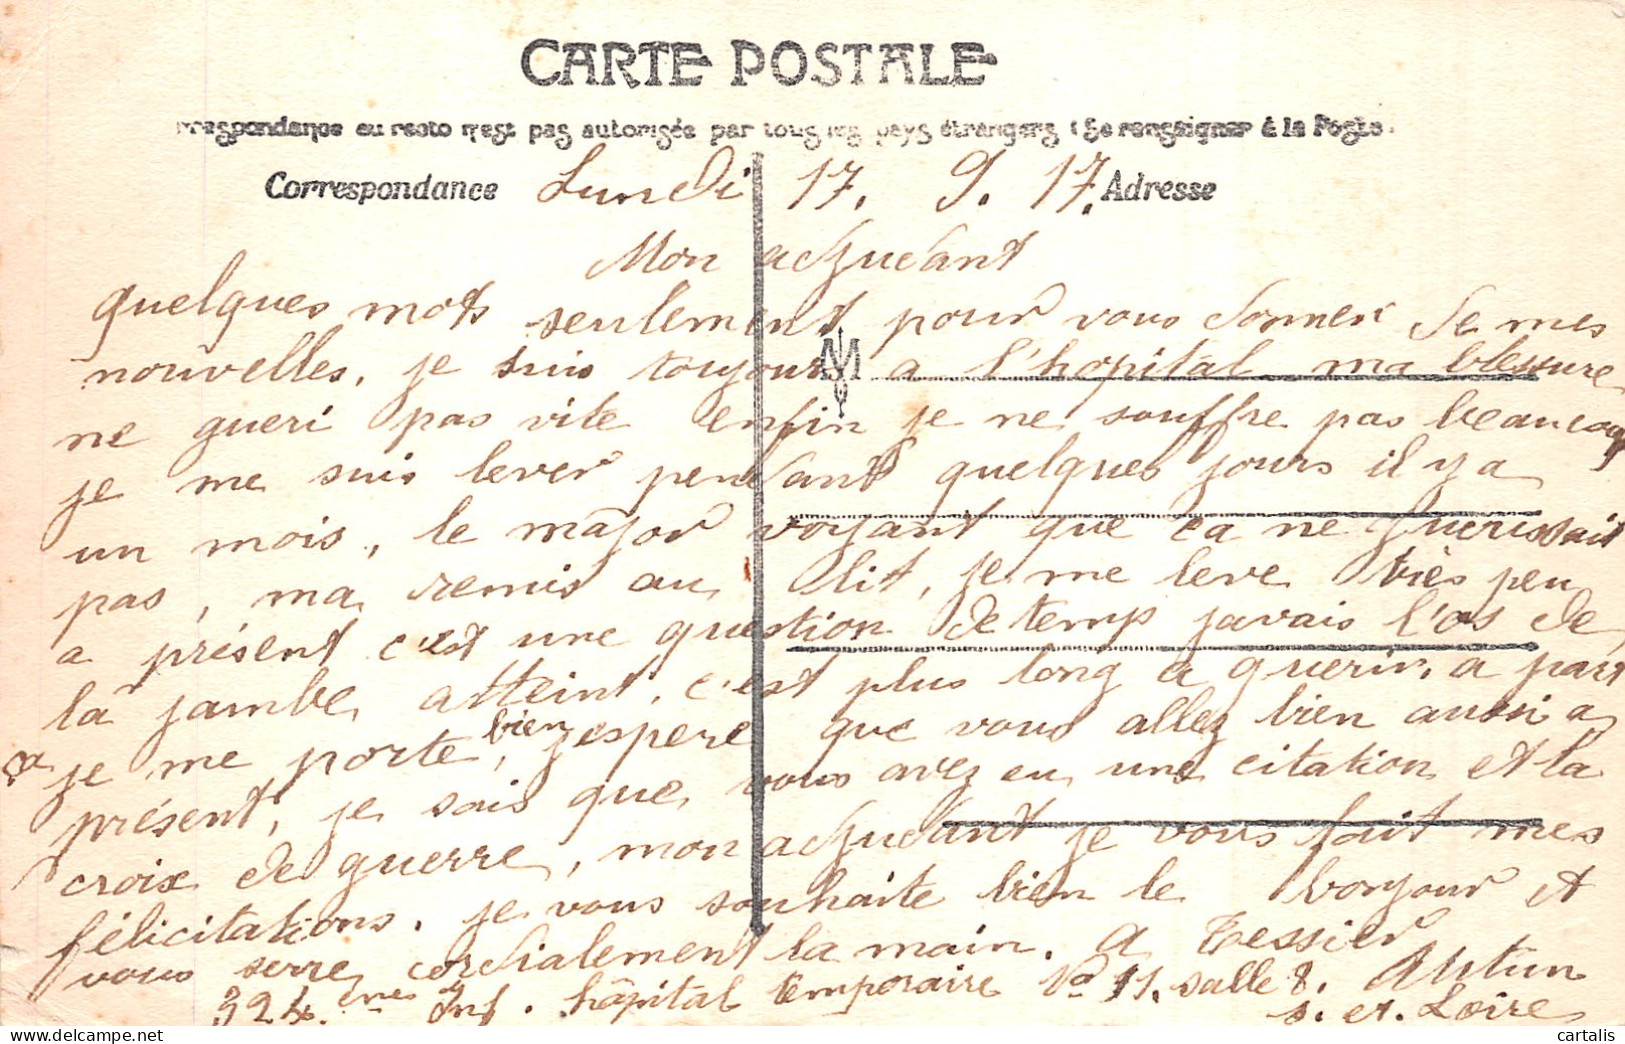 CARTE POSTALE
rrespondance au recto n'est pas autorisée par tous les pays étrangers (Se renseigner à la Poste.
Correspondance Lundi 17. 9. 17. Adresse
Mon adjudant
quelques mots seulement pour vous donner de mes
nouvelles, je suis toujours a l'hopital ma blessure
ne gueri pas vite enfin je ne souffre pas beaucoup
je me suis lever pendant quelques jours il y a
un mois, le major voyant que ca ne guerissait
pas, ma remis au lit, je me leve très peu
a présent c'est une question de temp javais l'os de
la jambe atteint, c'est plus long a guerir, a part
ca je me porte bien, j'espere que vous allez bien aussi a
présent, je sais que vous avez eu une citation et la
croix de guerre, mon adjudant je vous fait mes
félicitations, je vous souhaite bien le bonjour et
vous serre cordialement la main. A Tessier
324.eme Inf. hôpital temporaire No 11. salle 8. Autun
S. et. Loire
cartalis